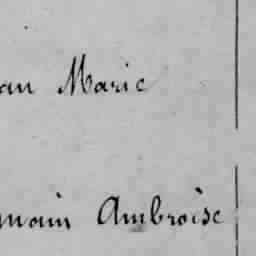 an Marie
main Ambroise